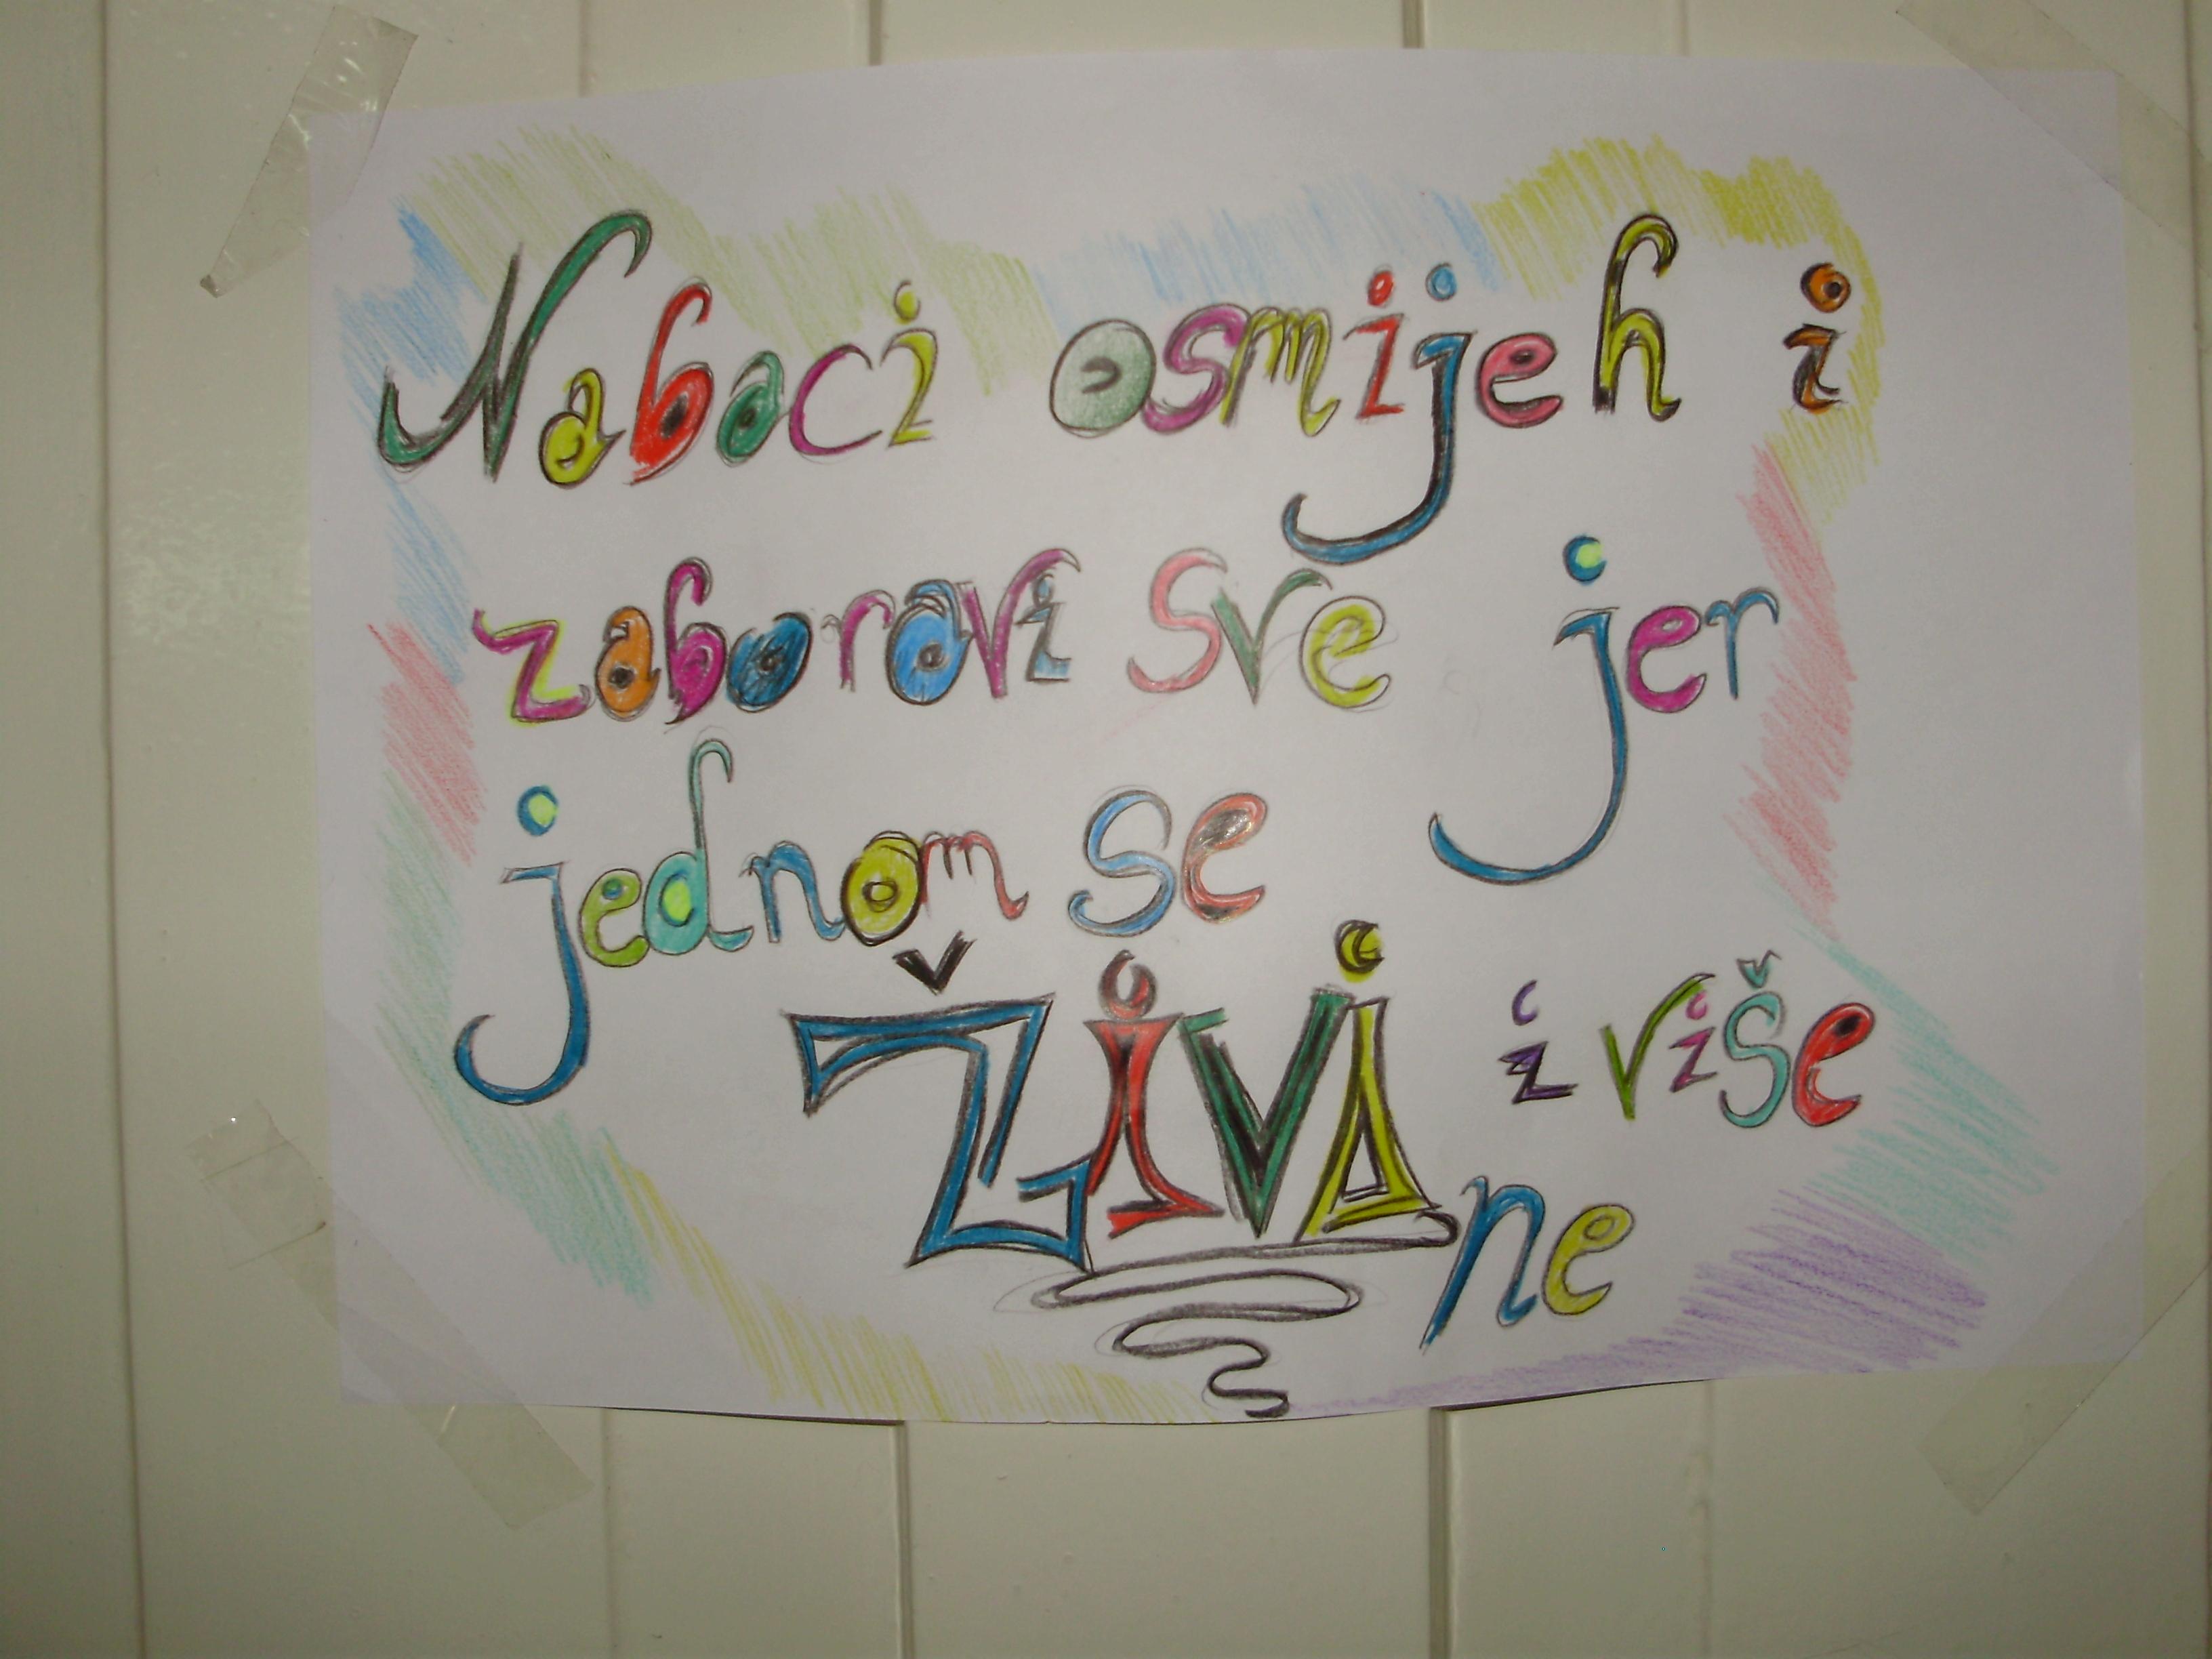 Nabaci osmijeh i
zaboravi sve jer
jednom se
ŽIVI i više
ne